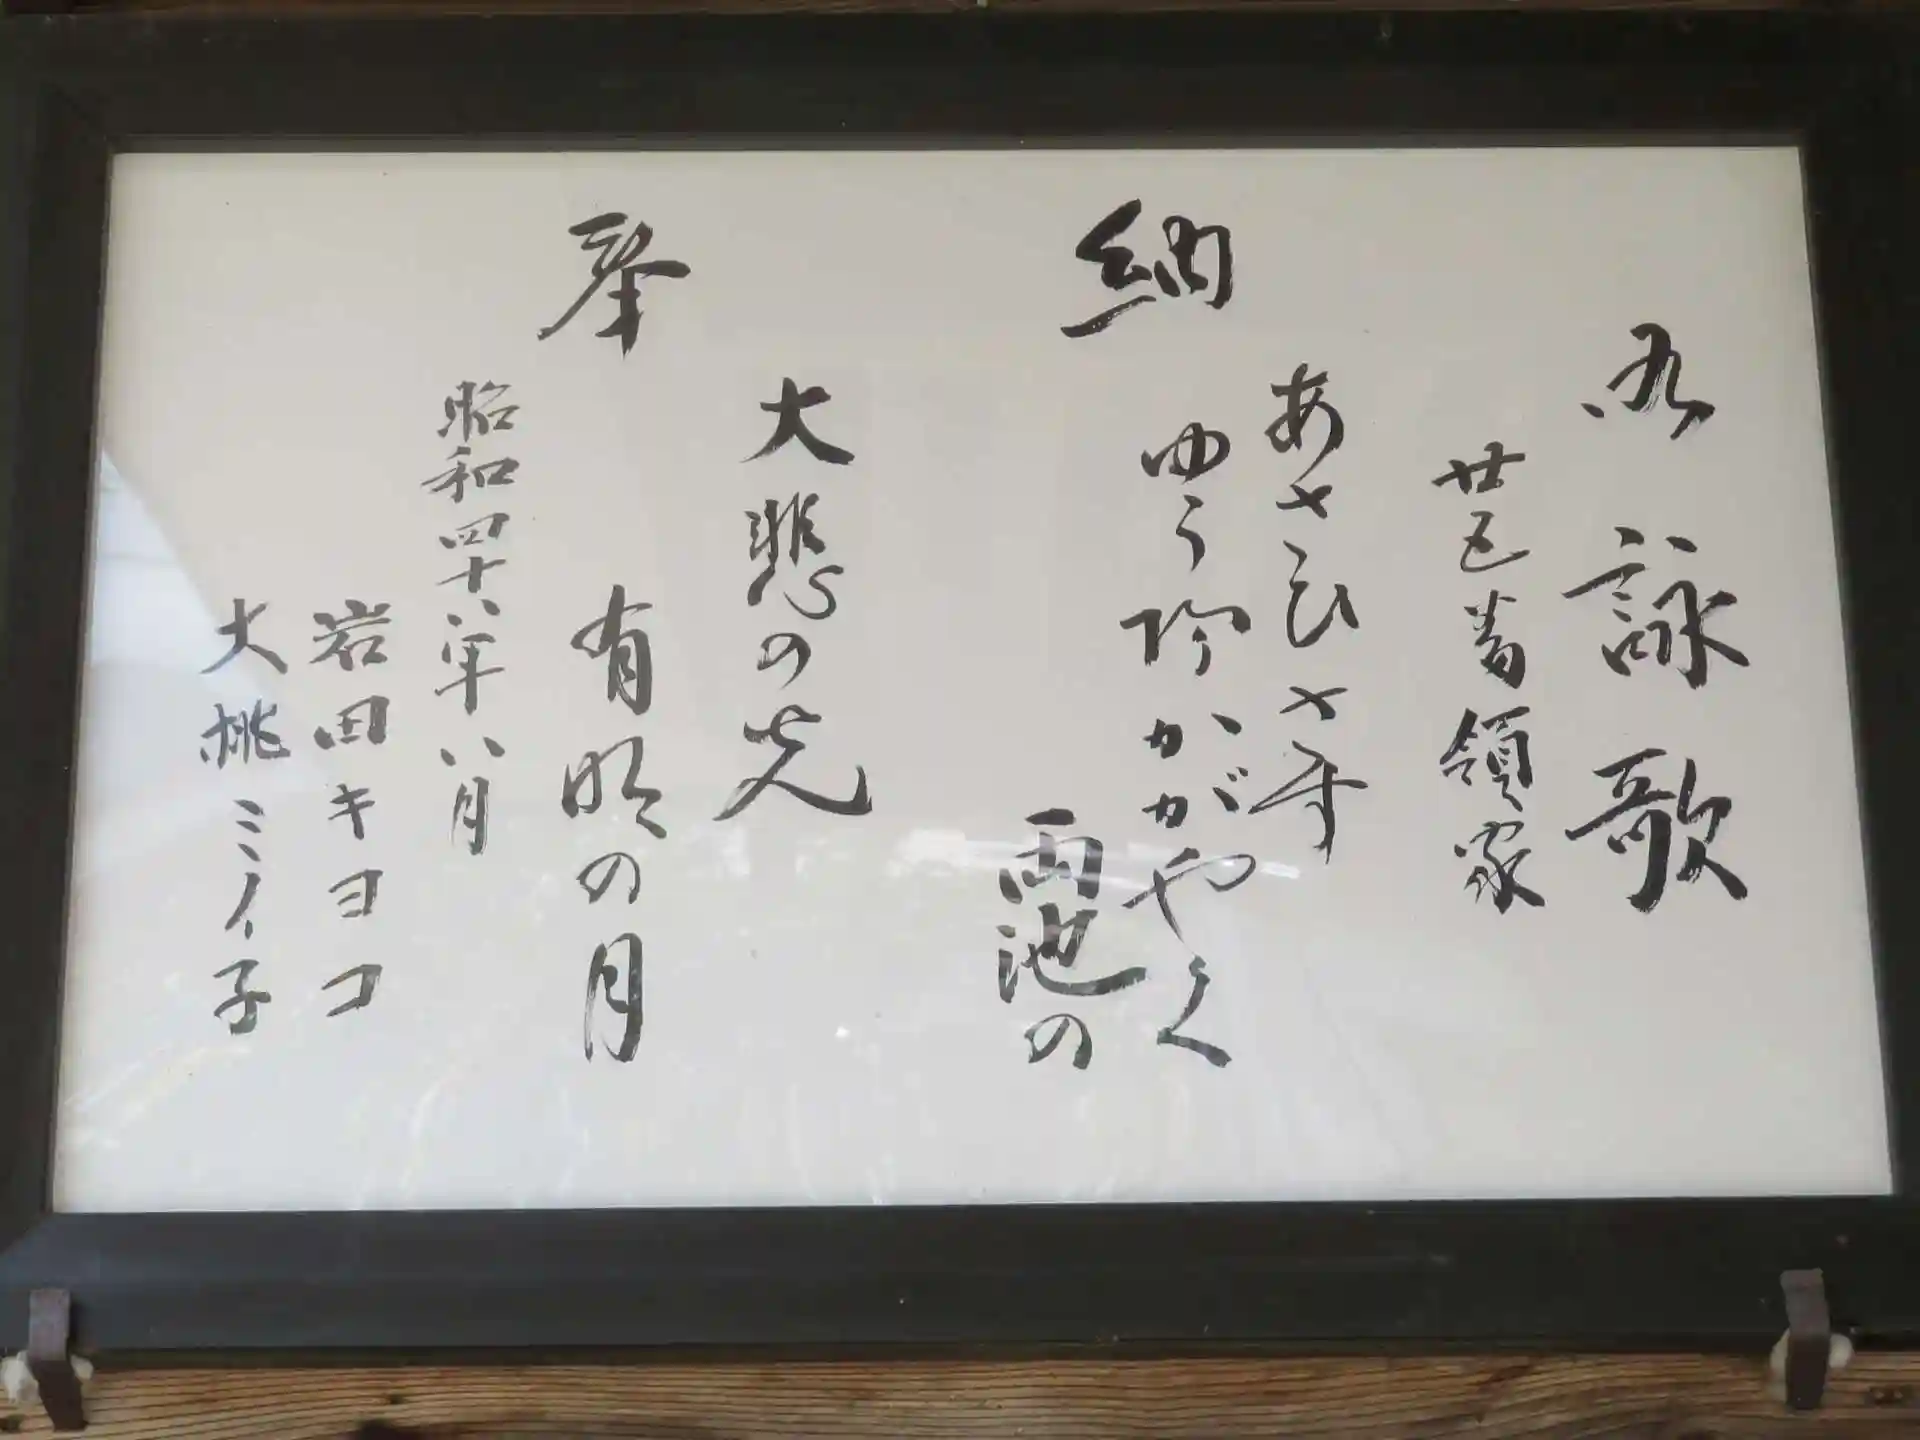 御詠歌
廿五番領家
納
あさひさす
ゆう陽かがやく
両池の
大悲の光
奉
有明の月
昭和四十八年八月
岩田キヨコ
大桃ミイ子